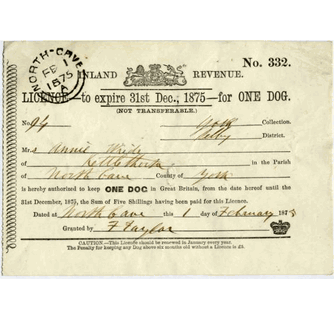 NORTH-CAVE
FE 1
1875
A
No. 332.
INLAND REVENUE.
LICENCE—to expire 31st Dec., 1875—for ONE DOG.
(NOT TRANSFERABLE.)
No. 94 York Collection.
Selby District.
Mrs Annie
of Kettlethorpe, in the Parish
of North Cave County of York
is hereby authorized to keep ONE DOG in Great Britain, from the date hereof until the
31st December, 1875, the Sum of Five Shillings having been paid for this Licence.
Dated at North Cave this 1 day of February 1875
Granted by F Taylor
CAUTION.—This Licence should be renewed in January every year.
The Penalty for keeping any Dog above six months old without a Licence is £5.